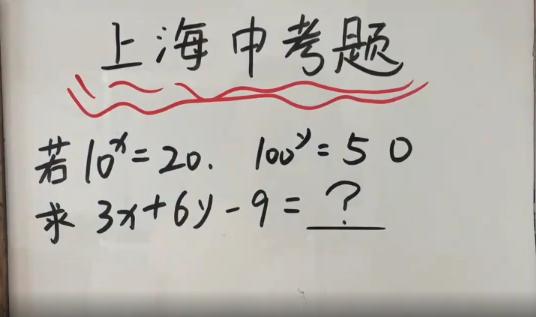 上海中考题
若10ˣ=20. 100ʸ=50
求 3x+6y-9=?